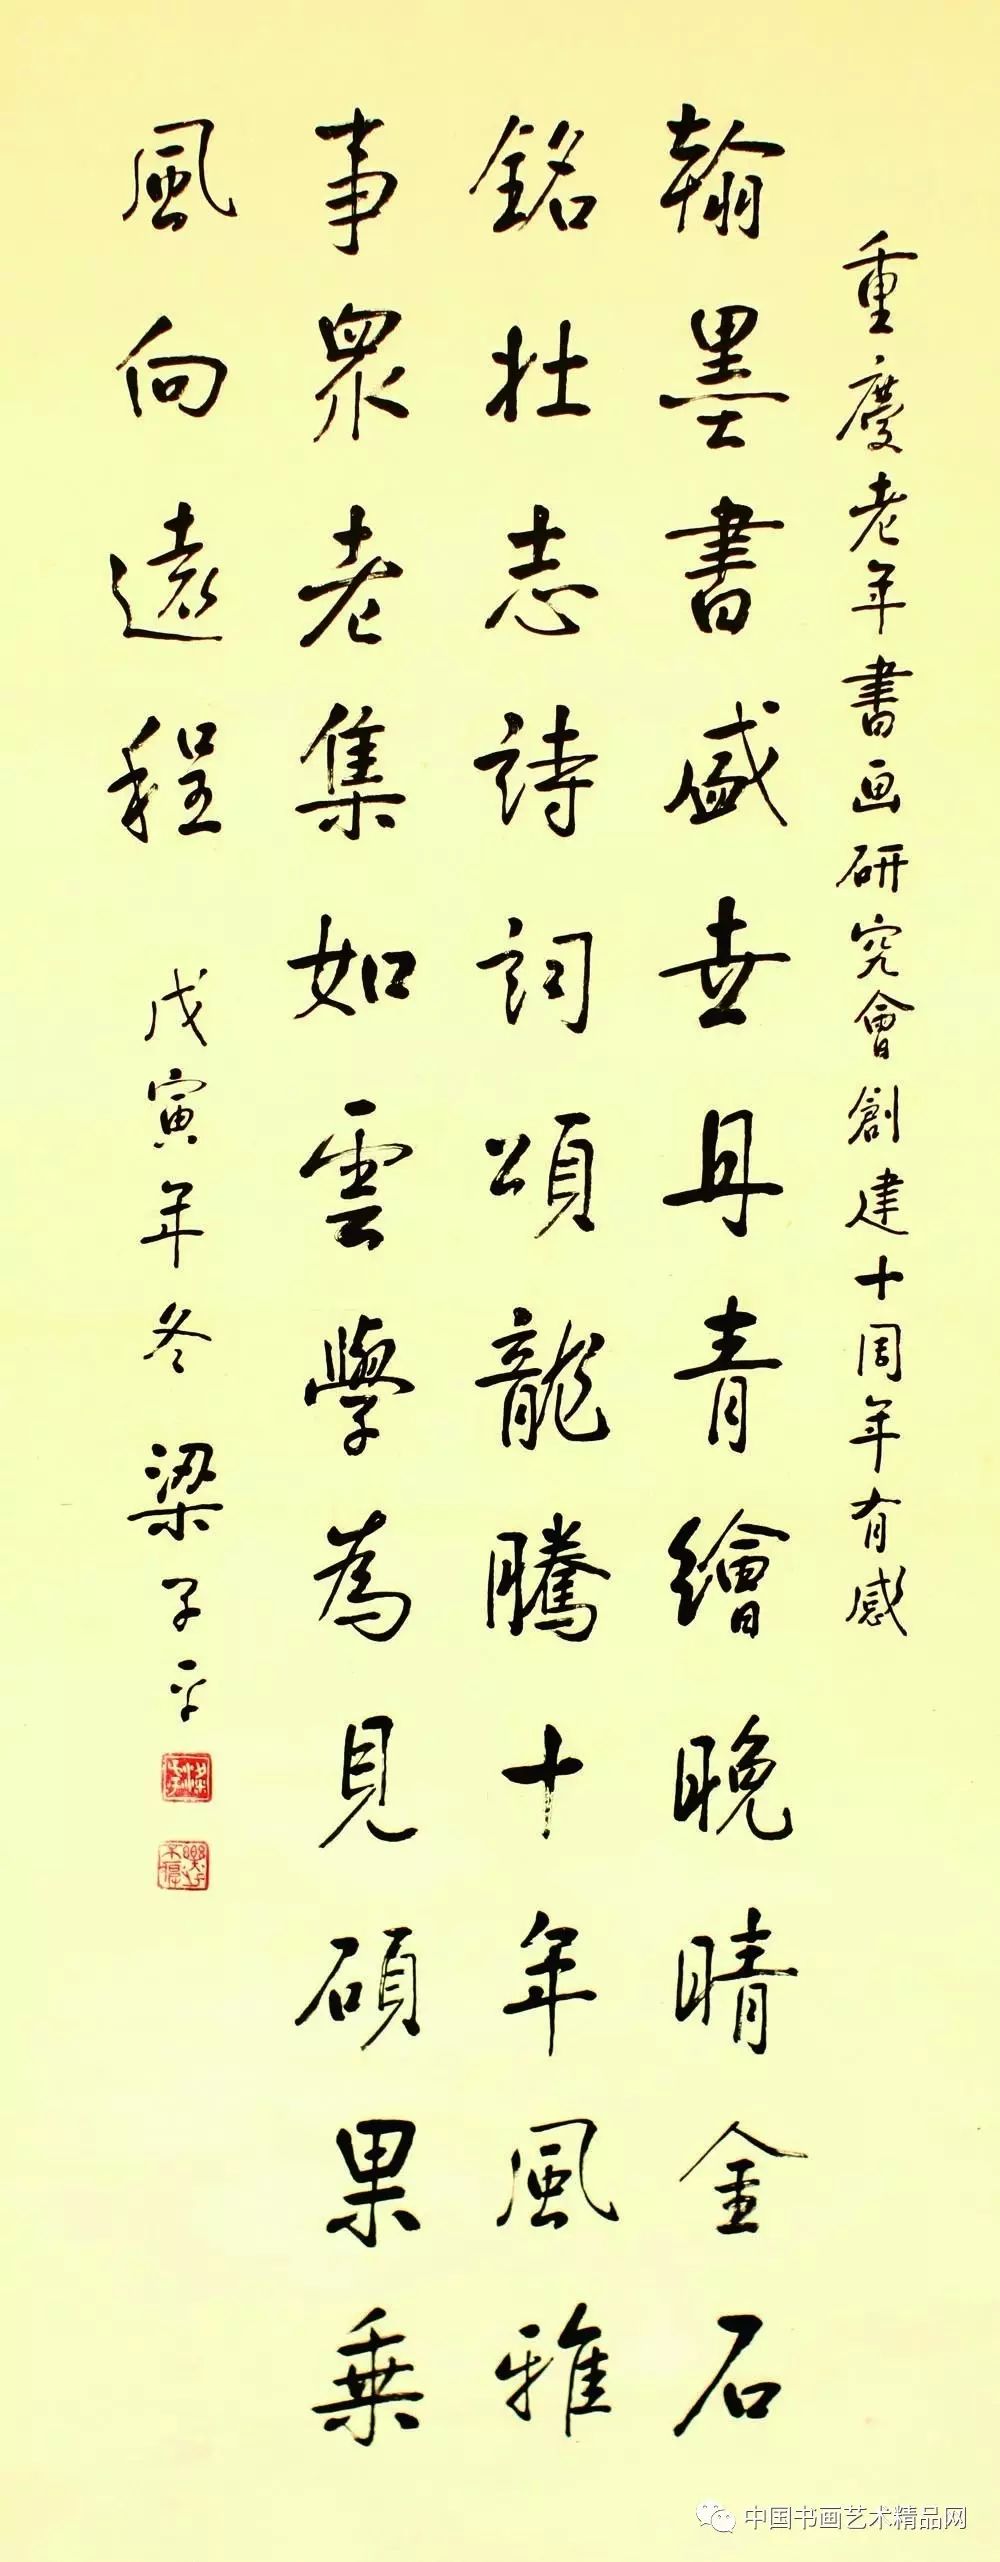 重慶老年書画研究會創建十周年有感
翰墨書盛世丹青繪晚晴金石
銘壯志詩詞頌龍騰十年風雅
事眾老集如雲學為見碩果乗
風向遠程
戊寅年冬 梁子平
中国书画艺术精品网